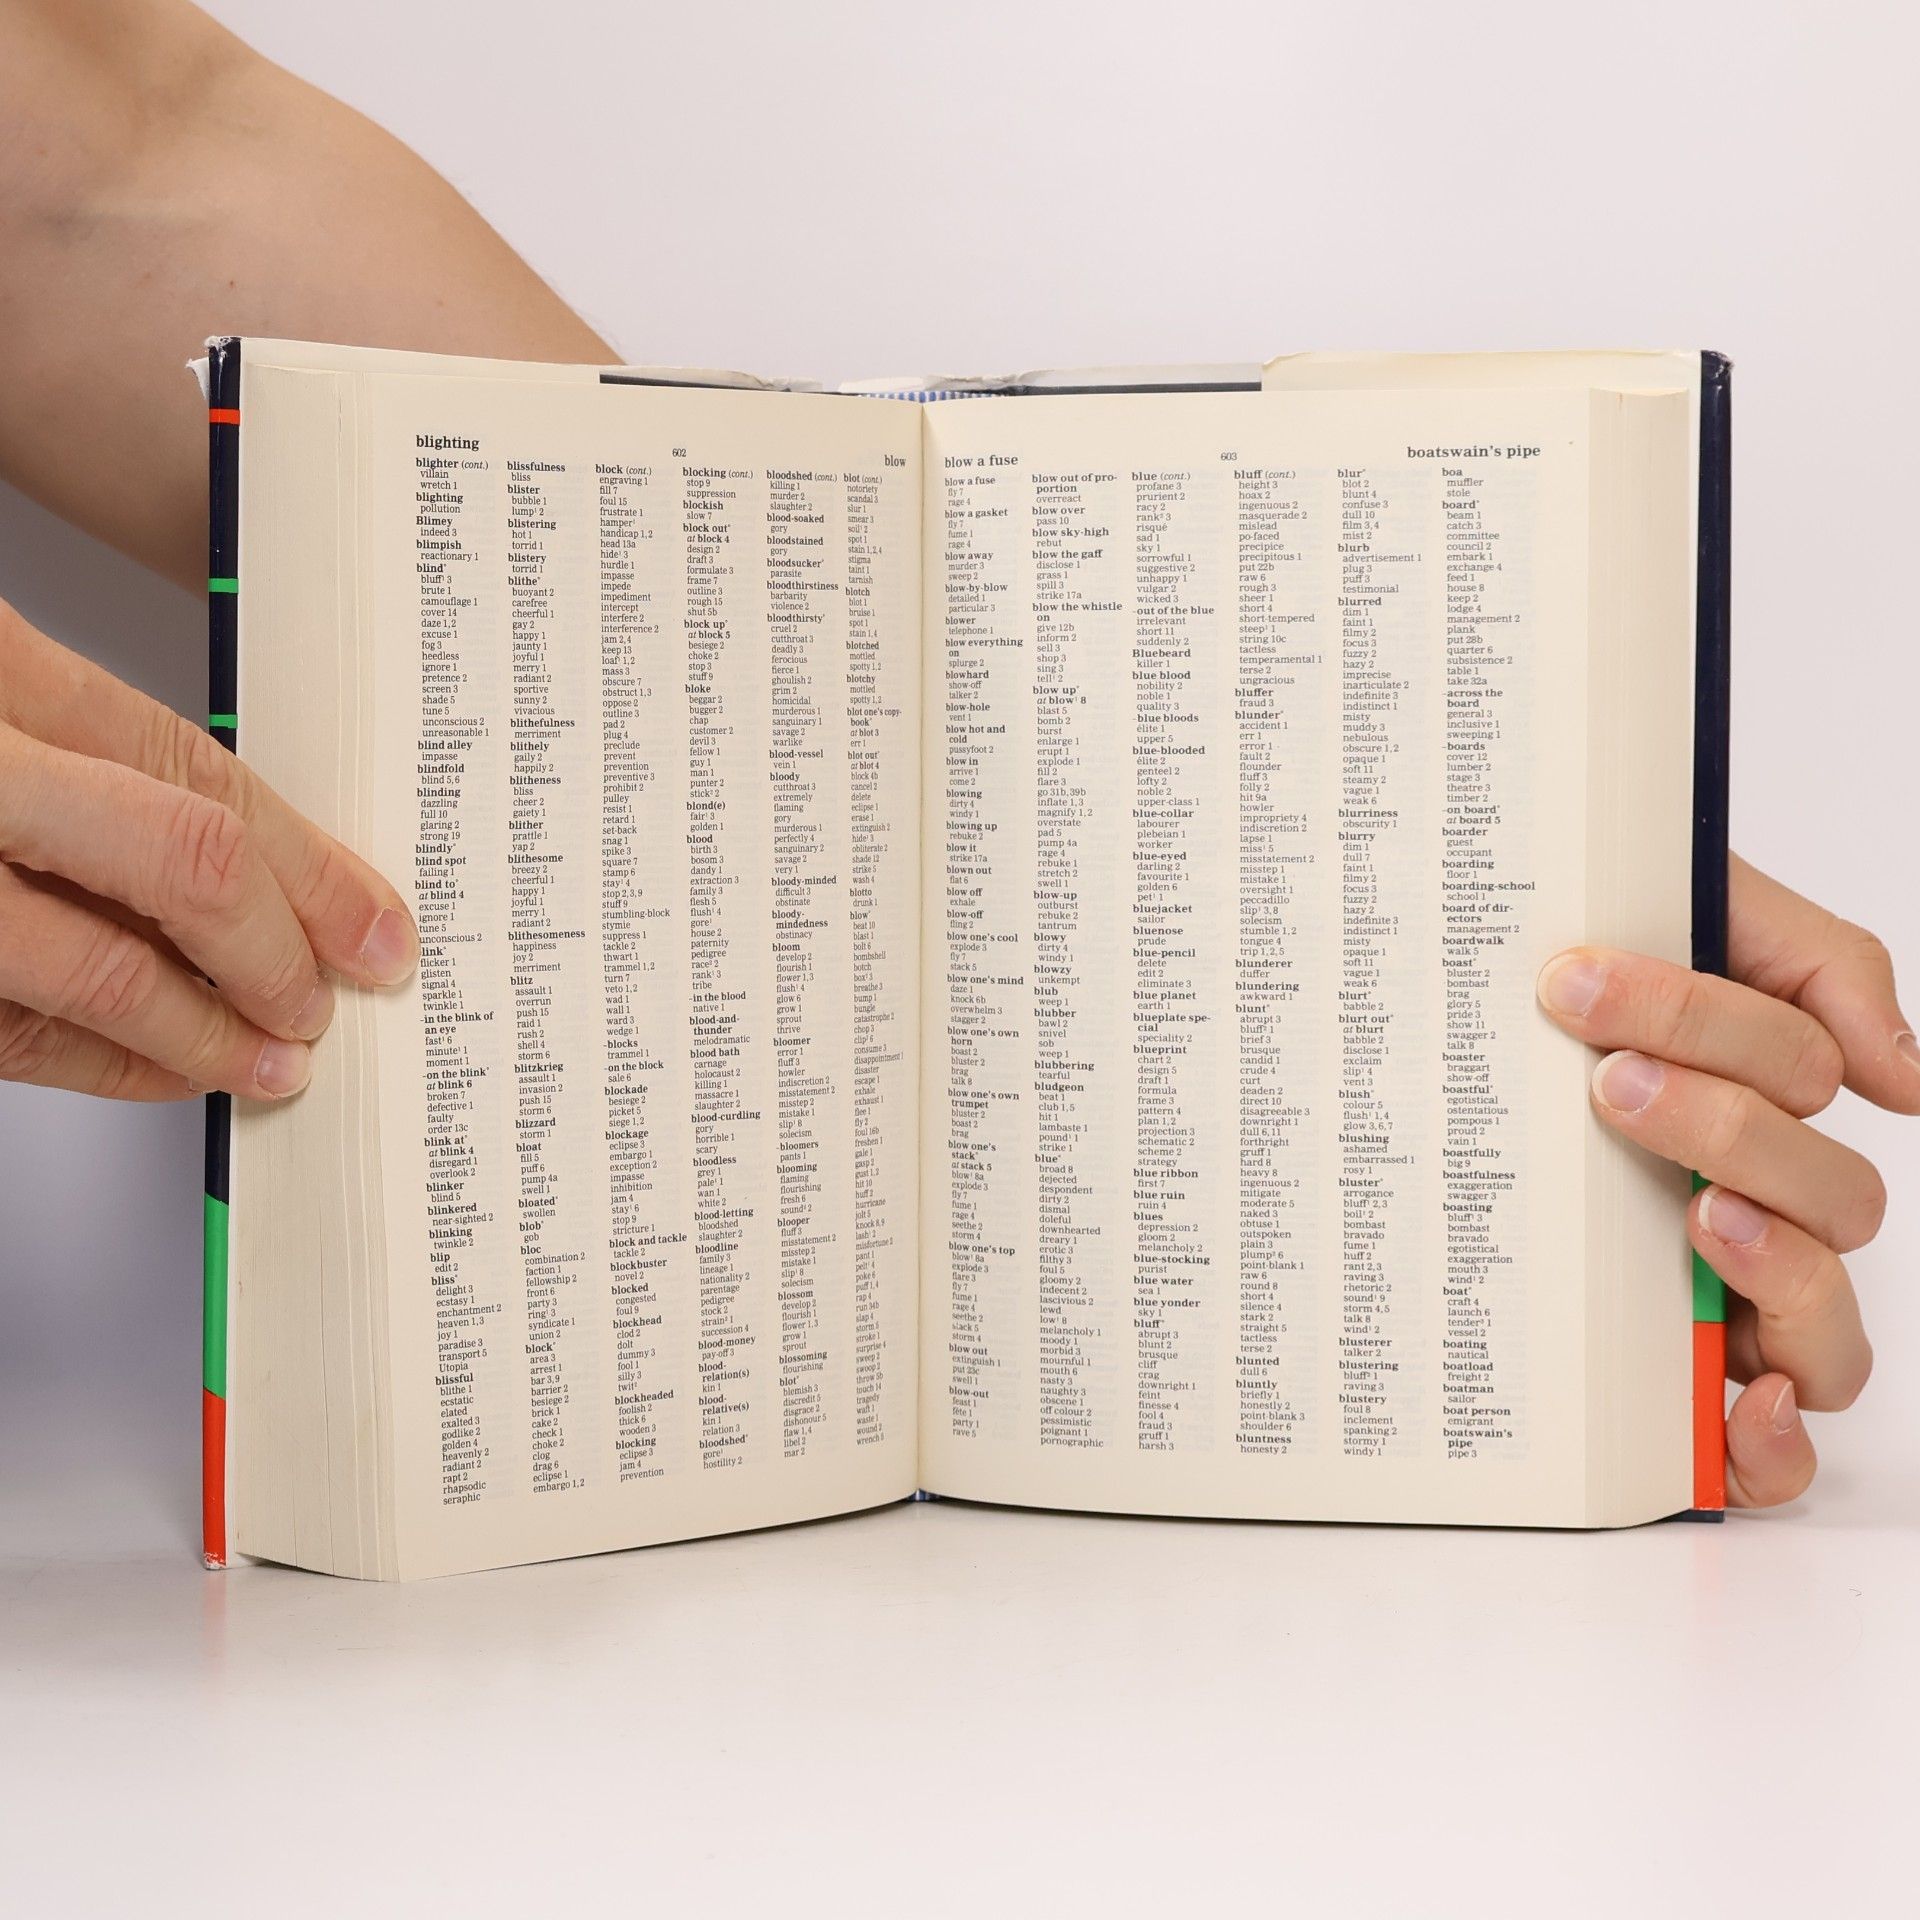 blighting
602
blow
blighter (cont.)
villain
wretch 1
blighting
pollution
Blimey
indeed 3
blimpish
reactionary 1
blind*
bluff¹ 3
brute 1
camouflage 1
cover 14
daze 1,2
excuse 1
fog 3
heedless
ignore 1
pretence 2
screen 3
shade 5
tune 5
unconscious 2
unreasonable 1
blind alley
impasse
blindfold
blind 5,6
blinding
dazzling
full 10
glaring 2
strong 19
blindly*
blind spot
failing 1
blind to*
at blind 4
excuse 1
ignore 1
tune 5
unconscious 2
link*
flicker 1
glisten
signal 4
sparkle 1
twinkle 1
-in the blink of
an eye
fast¹ 6
minute¹ 1
moment 1
-on the blink*
at blink 6
broken 7
defective 1
faulty
order 13c
blink at*
at blink 4
disregard 1
overlook 2
blinker
blind 5
blinkered
near-sighted 2
blinking
twinkle 2
blip
edit 2
bliss*
delight 3
ecstasy 1
enchantment 2
heaven 1,3
joy 1
paradise 3
transport 5
Utopia
blissful
blithe 1
ecstatic
elated
exalted 3
godlike 2
golden 4
heavenly 2
radiant 2
rapt 2
rhapsodic
seraphic
blissfulness
bliss
blister
bubble 1
lump¹ 2
blistering
hot 1
torrid 1
blistery
torrid 1
blithe*
buoyant 2
carefree
cheerful 1
gay 2
happy 1
jaunty 1
joyful 1
merry 1
radiant 2
sportive
sunny 2
vivacious
blithefulness
merriment
blithely
gaily 2
happily 2
blitheness
bliss
cheer 2
gaiety 1
blither
prattle 1
yap 2
blithesome
breezy 2
cheerful 1
happy 1
joyful 1
merry 1
radiant 2
blithesomeness
happiness
joy 2
merriment
blitz
assault 1
overrun
push 15
raid 1
rush 2
shell 4
storm 6
blitzkrieg
assault 1
invasion 2
push 15
storm 6
blizzard
storm 1
bloat
fill 5
puff 6
pump 4a
swell 1
bloated*
swollen
blob*
gob
bloc
combination 2
faction 1
fellowship 2
front 6
party 3
ring¹ 3
syndicate 1
union 2
block*
area 3
arrest 1
bar 3,9
barrier 2
besiege 2
brick 1
cake 2
check 1
choke 2
clog
drag 6
eclipse 1
embargo 1,2
block (cont.)
engraving 1
fill 7
foul 15
frustrate 1
hamper¹
handicap 1,2
head 13a
hide¹ 3
hurdle 1
impasse
impede
impediment
intercept
interfere 2
interference 2
jam 2,4
keep 13
loaf¹ 1,2
mass 3
obscure 7
obstruct 1,3
oppose 2
outline 3
pad 2
plug 4
preclude
prevent
prevention
preventive 3
prohibit 2
pulley
resist 1
retard 1
set-back
snag 1
spike 3
square 7
stamp 6
stay¹ 4
stop 2,3,9
stuff 9
stumbling-block
stymie
suppress 1
tackle 2
thwart 1
trammel 1,2
turn 7
veto 1,2
wad 1
wall 1
ward 3
wedge 1
-blocks
trammel 1
-on the block
sale 6
blockade
besiege 2
picket 5
siege 1,2
blockage
eclipse 3
embargo 1
exception 2
impasse
inhibition
jam 4
stay¹ 6
stop 9
stricture 1
block and tackle
tackle 2
blockbuster
novel 2
blocked
congested
foul 9
blockhead
clod 2
dolt
dummy 3
fool 1
silly 3
twit²
blockheaded
foolish 2
thick 6
wooden 3
blocking
eclipse 3
jam 4
prevention
blocking (cont.)
stop 9
suppression
blockish
slow 7
block out*
at block 4
design 2
draft 3
formulate 3
frame 7
outline 3
rough 15
shut 5b
block up*
at block 5
besiege 2
choke 2
stop 3
stuff 9
bloke
beggar 2
bugger 2
chap
customer 2
devil 3
fellow 1
guy 1
man 1
punter 2
stick² 2
blond(e)
fair¹ 3
golden 1
blood
birth 3
bosom 3
dandy 1
extraction 3
family 3
flesh 5
flush¹ 4
gore¹
house 2
paternity
pedigree
race² 2
rank¹ 3
tribe
-in the blood
native 1
blood-and-
thunder
melodramatic
blood bath
carnage
holocaust 2
killing 1
massacre 1
slaughter 2
blood-curdling
gory
horrible 1
scary
bloodless
grey 1
pale¹ 1
wan 1
white 2
blood-letting
bloodshed
slaughter 2
bloodline
family 3
lineage 1
nationality 2
parentage
pedigree
stock 2
strain² 1
succession 4
blood-money
pay-off 3
blood-
relation(s)
kin 1
blood-
relative(s)
kin 1
relation 3
bloodshed*
gore¹
hostility 2
bloodshed (cont.)
killing 1
murder 2
slaughter 2
blood-soaked
gory
bloodstained
gory
bloodsucker*
parasite
bloodthirstiness
barbarity
violence 2
bloodthirsty*
cruel 2
cutthroat 3
deadly 3
ferocious
fierce 1
ghoulish 2
grim 2
homicidal
murderous 1
sanguinary 1
savage 2
warlike
blood-vessel
vein 1
bloody
cutthroat 3
extremely
flaming
gory
murderous 1
perfectly 4
sanguinary 2
savage 2
very 1
bloody-minded
difficult 3
obstinate
bloody-
mindedness
obstinacy
bloom
develop 2
flourish 1
flower 1,3
flush¹ 4
glow 6
grow 1
sprout
thrive
bloomer
error 1
fluff 3
howler
indiscretion 2
misstatement 2
misstep 2
mistake 1
slip¹ 8
solecism
-bloomers
pants 1
blooming
flaming
flourishing
fresh 6
sound² 2
blooper
fluff 3
misstatement 2
misstep 2
mistake 1
slip¹ 8
solecism
blossom
develop 2
flourish 1
flower 1,3
grow 1
sprout
blossoming
flourishing
blot*
blemish 3
discredit 5
disgrace 2
dishonour 5
flaw 1,4
libel 2
mar 2
blot (cont.)
notoriety
scandal 3
slur 1
smear 3
soil¹ 2
spot 1
stain 1,2,4
stigma
taint 1
tarnish
blotch
blot 1
bruise 1
spot 1
stain 1,4
blotched
mottled
spotty 1,2
blotchy
mottled
spotty 1,2
blot one's copy-
book*
at blot 3
err 1
blot out*
at blot 4
block 4b
cancel 2
delete
eclipse 1
erase 1
extinguish 2
hide¹ 3
obliterate 2
shade 12
strike 5
wash 4
blotto
drunk 1
blow*
beat 10
blast 1
bolt 6
bombshell
botch
box² 3
breathe 3
bump 1
bungle
catastrophe 2
chop 3
clip² 6
consume 3
disappointment 1
disaster
escape 1
exhale
exhaust 1
flee 1
fly 2
foul 16b
freshen 1
gale 1
gasp 2
gust 1,2
hit 10
huff 2
hurricane
jolt 5
knock 8,9
lash¹ 2
misfortune 2
pant 1
pelt¹ 4
poke 6
puff 1,4
rap 4
run 34b
slap 4
storm 5
stroke 1
surprise 4
sweep 2
swoop 2
throw 5b
touch 14
tragedy
waft 1
waste 1
wound 2
wrench 5
blow a fuse
603
boatswain's pipe
blow a fuse
fly 7
rage 4
blow a gasket
fly 7
fume 1
rage 4
blow away
murder 3
sweep 2
blow-by-blow
detailed 1
particular 3
blower
telephone 1
blow everything
on
splurge 2
blowhard
show-off
talker 2
blow-hole
vent 1
blow hot and
cold
pussyfoot 2
blow in
arrive 1
come 2
blowing
dirty 4
windy 1
blowing up
rebuke 2
blow it
strike 17a
blown out
flat 6
blow off
exhale
blow-off
fling 2
blow one's cool
explode 3
fly 7
stack 5
blow one's mind
daze 1
knock 6b
overwhelm 3
stagger 2
blow one's own
horn
boast 2
bluster 2
brag
talk 8
blow one's own
trumpet
bluster 2
boast 2
brag
blow one's
stack*
at stack 5
blow¹ 8a
explode 3
fly 7
fume 1
rage 4
seethe 2
storm 4
blow one's top
blow¹ 8a
explode 3
flare 3
fly 7
fume 1
rage 4
seethe 2
stack 5
storm 4
blow out
extinguish 1
put 23c
swell 1
blow-out
feast 1
fête 1
party 1
rave 5
blow out of pro-
portion
overreact
blow over
pass 10
blow sky-high
rebut
blow the gaff
disclose 1
grass 1
spill 3
strike 17a
blow the whistle
on
give 12b
inform 2
sell 3
shop 3
sing 3
tell¹ 2
blow up*
at blow¹ 8
blast 5
bomb 2
burst
enlarge 1
erupt 1
explode 1
fill 2
flare 3
go 31b,39b
inflate 1,3
magnify 1,2
overstate
pad 5
pump 4a
rage 4
rebuke 1
stretch 2
swell 1
blow-up
outburst
rebuke 2
tantrum
blowy
dirty 4
windy 1
blowzy
unkempt
blub
weep 1
blubber
bawl 2
snivel
sob
weep 1
blubbering
tearful
bludgeon
beat 1
club 1,5
hit 1
lambaste 1
pound¹ 1
strike 1
blue*
broad 8
dejected
despondent
dirty 2
dismal
doleful
downhearted
dreary 1
erotic 3
filthy 3
foul 5
gloomy 2
indecent 2
lascivious 2
lewd
low¹ 8
melancholy 1
moody 1
morbid 3
mournful 1
mouth 6
nasty 3
naughty 3
obscene 1
off colour 2
pessimistic
poignant 1
pornographic
blue (cont.)
profane 3
prurient 2
racy 2
rank² 3
risqué
sad 1
sky 1
sorrowful 1
suggestive 2
unhappy 1
vulgar 2
wicked 3
-out of the blue
irrelevant
short 11
suddenly 2
Bluebeard
killer 1
blue blood
nobility 2
noble 1
quality 3
-blue bloods
élite 1
upper 5
blue-blooded
élite 2
genteel 2
lofty 2
noble 2
upper-class 1
blue-collar
labourer
plebeian 1
worker
blue-eyed
darling 2
favourite 1
golden 6
pet¹ 1
bluejacket
sailor
bluenose
prude
blue-pencil
delete
edit 2
eliminate 3
blue planet
earth 1
blueplate spe-
cial
speciality 2
blueprint
chart 2
design 5
draft 1
formula
frame 3
pattern 4
plan 1,2
projection 3
schematic 2
scheme 2
strategy
blue ribbon
first 7
blue ruin
ruin 4
blues
depression 2
gloom 2
melancholy 2
blue-stocking
purist
blue water
sea 1
blue yonder
sky 1
bluff*
abrupt 3
blunt 2
brusque
cliff
crag
downright 1
feint
finesse 4
fool 4
fraud 3
gruff 1
harsh 3
bluff (cont.)
height 3
hoax 2
ingenuous 2
masquerade 2
mislead
po-faced
precipice
precipitous 1
put 22b
raw 6
rough 3
sheer 1
short 4
short-tempered
steep¹ 1
string 10c
tactless
temperamental 1
terse 2
ungracious
bluffer
fraud 3
blunder*
accident 1
err 1
error 1
fault 2
flounder
fluff 3
folly 2
hit 9a
howler
impropriety 4
indiscretion 2
lapse 1
miss¹ 5
misstatement 2
misstep 1
mistake 1
oversight 1
peccadillo
slip¹ 3,8
solecism
stumble 1,2
tongue 4
trip 1,2,5
blunderer
duffer
blundering
awkward 1
blunt*
abrupt 3
bluff² 1
brief 3
brusque
candid 1
crude 4
curt
deaden 2
direct 10
disagreeable 3
downright 1
dull 6,11
forthright
gruff 1
hard 8
heavy 8
ingenuous 2
mitigate
moderate 5
naked 3
obtuse 1
outspoken
plain 3
plump² 6
point-blank 1
raw 6
round 8
short 4
silence 4
stark 2
straight 5
tactless
terse 2
blunted
dull 6
bluntly
briefly 1
honestly 2
point-blank 3
shoulder 6
bluntness
honesty 2
blur*
blot 2
blunt 4
confuse 3
dull 10
film 3,4
mist 2
blurb
advertisement 1
plug 3
puff 3
testimonial
blurred
dim 1
faint 1
filmy 2
focus 3
fuzzy 2
hazy 2
imprecise
inarticulate 2
indefinite 3
indistinct 1
misty
muddy 3
nebulous
obscure 1,2
opaque 1
soft 11
steamy 2
vague 1
weak 6
blurriness
obscurity 1
blurry
dim 1
dull 7
faint 1
filmy 2
focus 3
fuzzy 2
hazy 2
indefinite 3
indistinct 1
misty
opaque 1
soft 11
vague 1
weak 6
blurt*
babble 2
blurt out*
at blurt
babble 2
disclose 1
exclaim
slip¹ 4
vent 3
blush*
colour 5
flush¹ 1,4
glow 3,6,7
blushing
ashamed
embarrassed 1
rosy 1
bluster*
arrogance
bluff¹ 2,3
boil¹ 2
bombast
bravado
fume 1
huff 2
rant 2,3
raving 3
rhetoric 2
sound¹ 9
storm 4,5
talk 8
wind¹ 2
blusterer
talker 2
blustering
bluff² 1
raving 3
blustery
foul 8
inclement
spanking 2
stormy 1
windy 1
boa
muffler
stole
board*
beam 1
catch 3
committee
council 2
embark 1
exchange 4
feed 1
house 8
keep 2
lodge 4
management 2
plank
put 28b
quarter 6
subsistence 2
table 1
take 32a
-across the
board
general 3
inclusive 1
sweeping 1
-boards
cover 12
lumber 2
stage 3
theatre 3
timber 2
-on board*
at board 5
boarder
guest
occupant
boarding
floor 1
boarding-school
school 1
board of dir-
ectors
management 2
boardwalk
walk 5
boast*
bluster 2
bombast
brag
glory 5
pride 3
show 11
swagger 2
talk 8
boaster
braggart
show-off
boastful*
egotistical
ostentatious
pompous 1
proud 2
vain 1
boastfully
big 9
boastfulness
exaggeration
swagger 3
boasting
bluff¹ 3
bombast
bravado
egotistical
exaggeration
mouth 3
wind¹ 2
boat*
craft 4
launch 6
tender² 1
vessel 2
boating
nautical
boatload
freight 2
boatman
sailor
boat person
emigrant
boatswain's
pipe
pipe 3